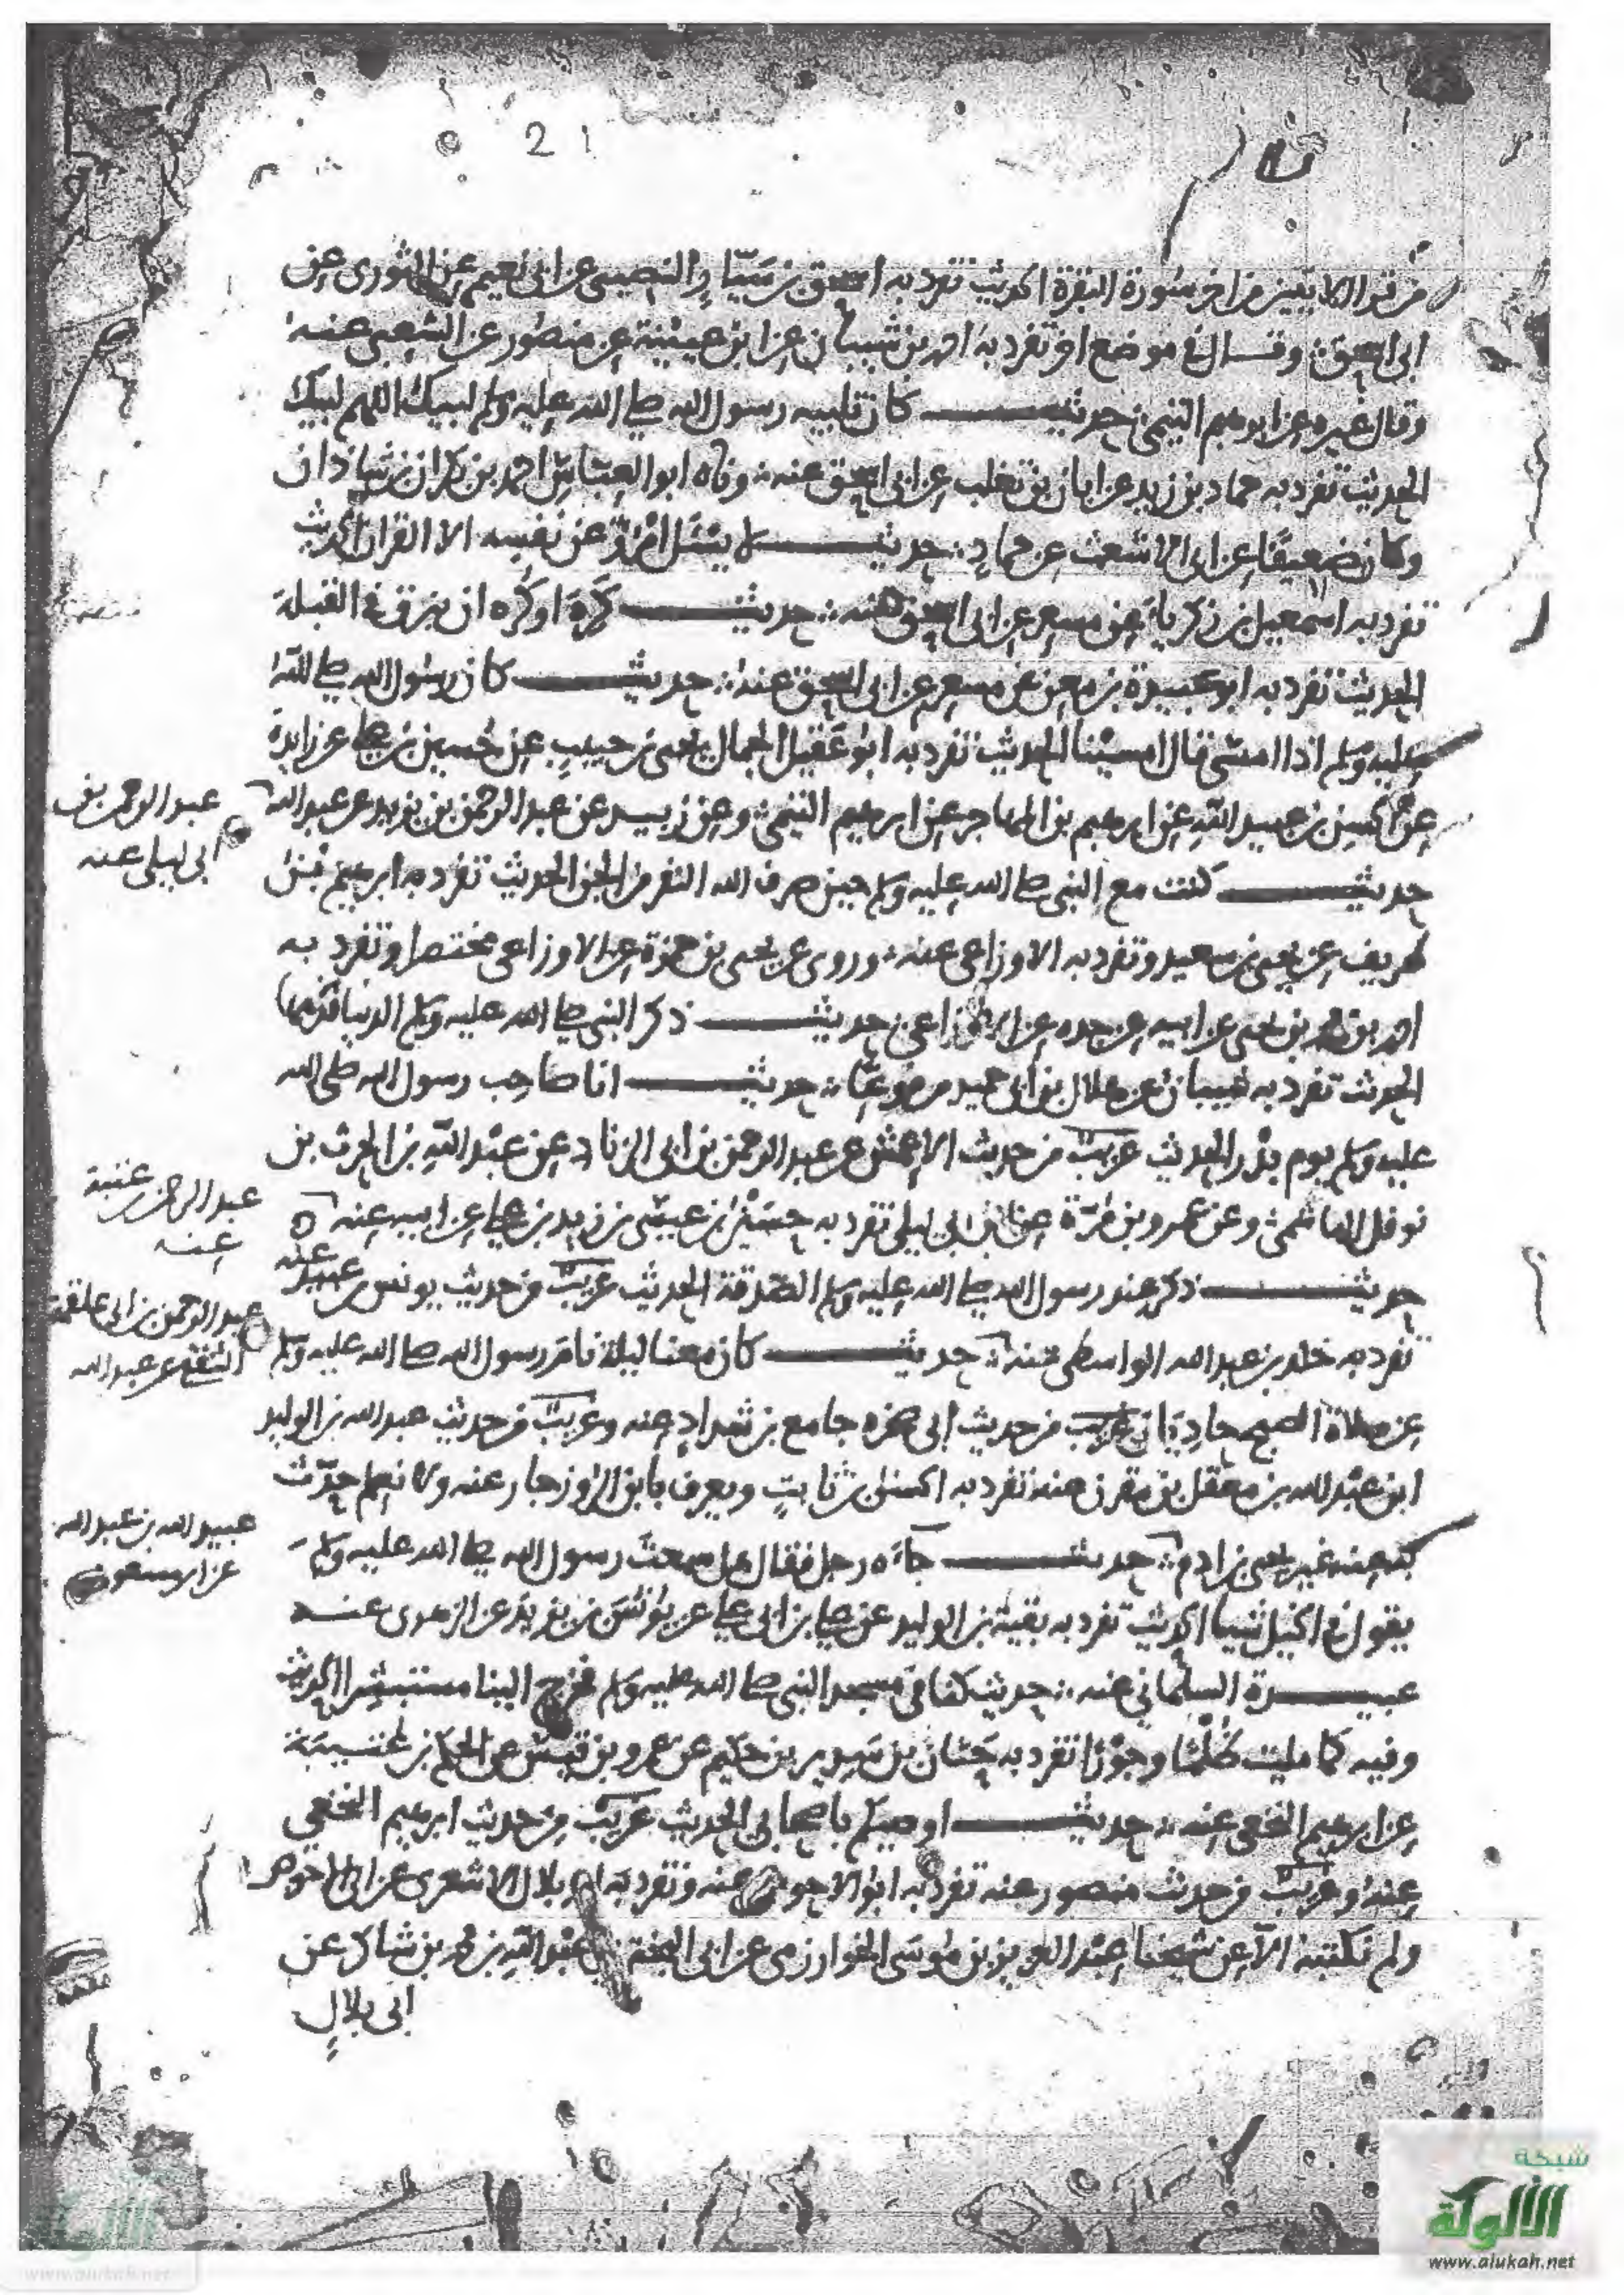 21
من قرا الايتين من اخر سورة البقرة الحديث تفرد به اسحق بن سيار النصيبى عن ابى نعيم عن الثورى عن
ابى اسحق وقال فى موضع اخر تفرد به احمد بن شيبان عن ابن عيينة عن منصور عن الشعبى عنه
وقال غيره عن ابرهيم التيمى حديث كان تلبيه رسول الله صلى الله عليه وسلم لبيك اللهم لبيك
الحديث تفرد به حماد بن زيد عن ابان بن تغلب عن ابى اسحق عنه ورواه ابو العباس احمد بن بكران بن شاذان
وكان ضعيفا عن ابى الاشعث عن حماد حديث لا يسئل امرؤ عن نفسه الا القران الحديث
تفرد به اسمعيل بن زكريا عن مسعر عن ابى اسحق عنه حديث كره او كره ان يبزق فى القبلة
الحديث تفرد به ابو عبيدة بن معن عن مسعر عن ابى اسحق عنه حديث كان رسول الله صلى الله
عليه وسلم اذا امسى قال امسينا الحديث تفرد به ابو عقيل الجمال يحيى بن حبيب عن حسين بن على عن زايدة
عن الحسن بن عبيد الله عن ابرهيم بن المهاجر عن ابرهيم التيمى وعن زبيد عن عبد الرحمن بن يزيد عن عبد الله
عبد الرحمن بن
ابى ليلى عنه
حديث كنت مع النبى صلى الله عليه وسلم حين صرف الله النفر من الجن الحديث تفرد به ابرهيم بن
طريف عن يحيى بن سعيد وتفرد به الاوزاعى عنه وروى عن يحيى بن حمزة عن الاوزاعى مختصرا وتفرد به
احمد بن محمد بن يحيى عن ابيه عن جده عن الاوزاعى حديث ذكر النبى صلى الله عليه وسلم الدنيا
الحديث تفرد به شيبان عن هلال بن ابى حميد مرفوعا حديث انا صاحب رسول الله صلى الله
عليه وسلم يوم بدر الحديث غريب من حديث الاعمش عن عبد الرحمن بن ابى الزناد عن عبد الله بن الحرث بن
نوفل الهاشمى وعن عمرو بن مرة عن ابن ابى ليلى تفرد به حسين بن عيسى بن زيد بن على عن ابيه عنه
عبد الرحمن بن عتبة
عنه
حديث ذكر عند رسول الله صلى الله عليه وسلم الصدقة الحديث غريب من حديث يونس بن عبيد عنه
تفرد به خلد بن عبد الله الواسطى عنه حديث كان معنا ليلة نام رسول الله صلى الله عليه وسلم
عبد الرحمن بن ابى علقمة
الثقفى عن عبد الله
عن صلاة الصبح غريب من حديث ابى صخره جامع بن شداد عنه وغريب من حديث عبد الله بن الوليد
ابن عبد الله بن معقل بن مقرن عنه تفرد به الحسن بن ثابت ويعرف بابن الروزجار عنه ولا نعلم حدث
به عنه غير يحيى بن ادم حديث جاءه رجل فقال هل سمعت رسول الله صلى الله عليه وسلم
عبيد الله بن عبد الله
عن ابن مسعود
يقول فى الخيل شيا الحديث تفرد به بقية بن الوليد عن على بن ابى على عن يونس بن يزيد عن الزهرى عنه
عبيدة السلمانى عنه حديث كنا فى مسجد النبى صلى الله عليه وسلم فخرج الينا مستبشرا الحديث
وفيه كما مليت ظلما وجورا تفرد به حنان بن سدير بن حكيم عن عمرو بن قيس عن الحكم بن عتيبة
عن ابرهيم النخعى عنه حديث اوصيكم باصحابى الحديث غريب من حديث ابرهيم النخعى
عنه وغريب من حديث منصور عنه تفرد به ابو الاحوص عنه وتفرد به ابو بلال الاشعرى عن ابى الاحوص
ولم نكتبه الا عن شيخنا عبد العزيز بن موسى الخوارزمى عن ابى البخترى عبد الله بن محمد بن شاكر عن
ابى بلال
شبكة
الألوكة
www.alukah.net